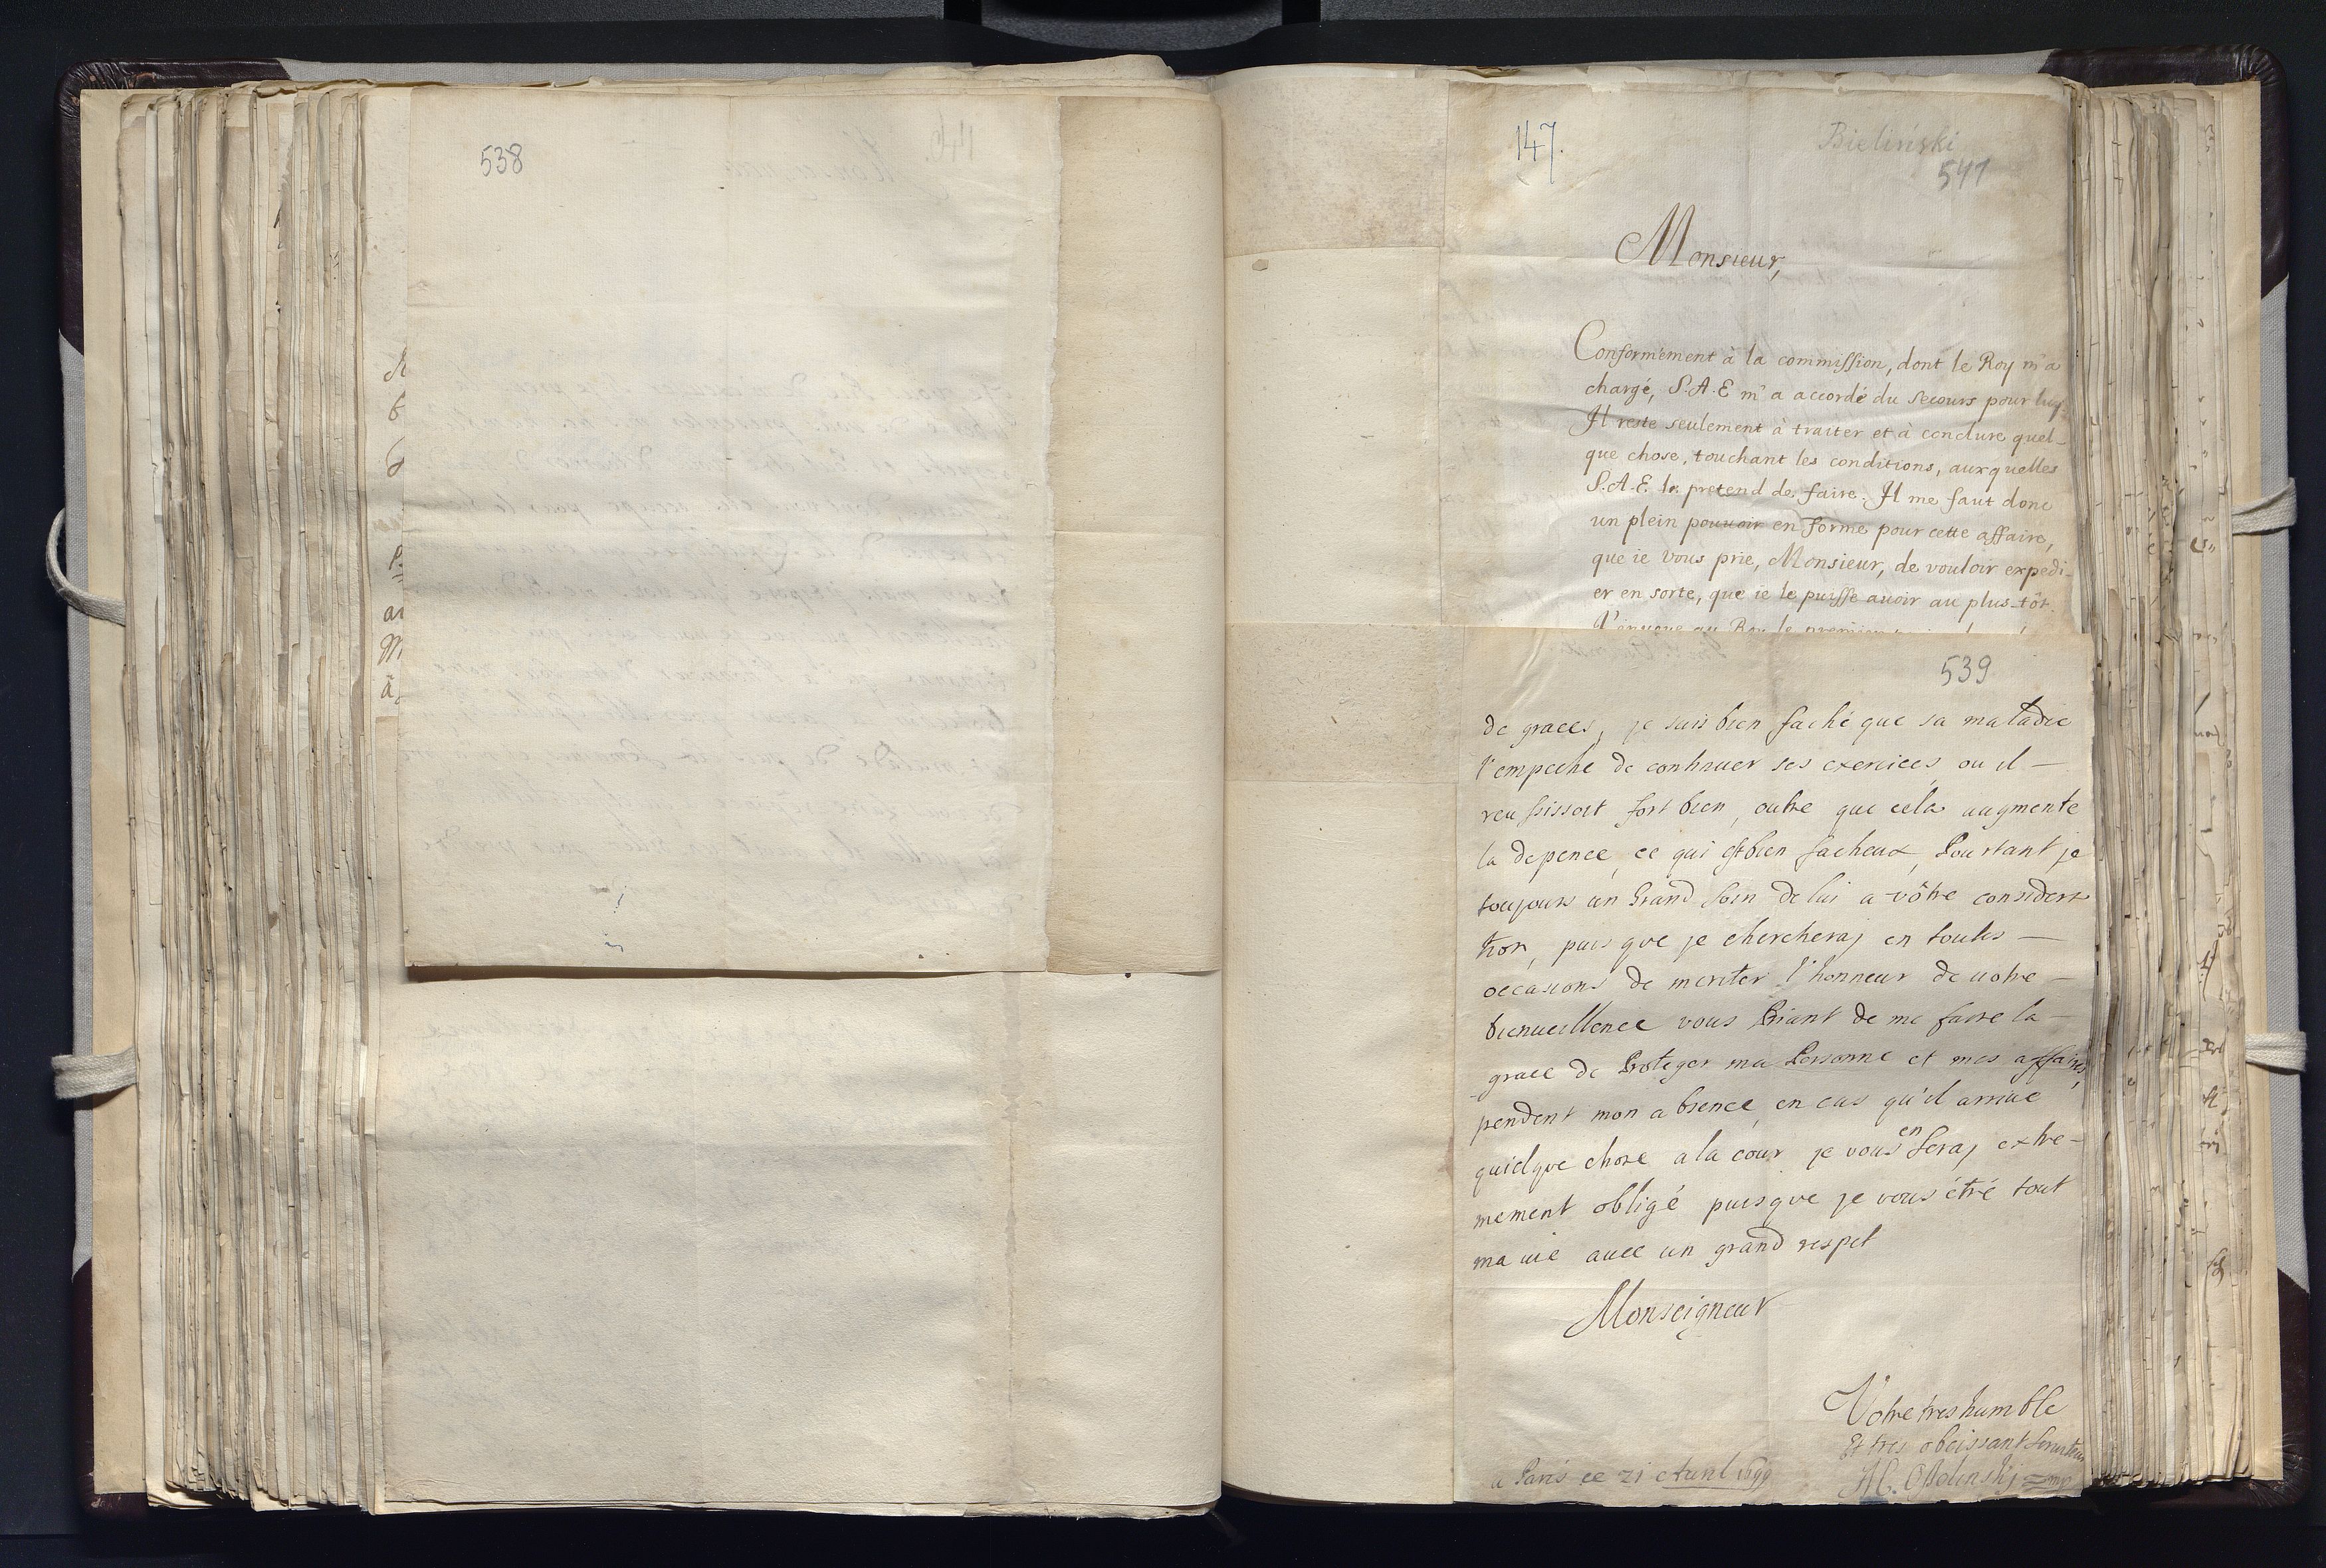 538
147.
Bieliński
541
Monsieur,
Conformement à la commission, dont le Roy m'a
chargé, S.A.E m'a accordé du secours pour luy.
Il reste seulement à traiter et à conclure quel-
que chose, touchant les conditions, auxquelles
S.A.E. le pretend de faire. Il me faut donc
un plein pouuoir en forme pour cette affaire,
que ie vous prie, Monsieur, de vouloir expedi-
er en sorte, que ie le puisse auoir au plus-tôt.
J'enuoye au Roy le premier
539
de graces, je suis bien faché que sa maladie
l'empeche de continuer ses exercices ou il —
reussissoit fort bien, outre que cela augmente
la depence, ce qui est bien facheux, Pourtant je
toujours un Grand soin de lui a vôtre considera
tion, puis que je chercheraj en toutes —
occasions de meriter l'honneur de uotre —
bienueillence vous Priant de me faire la —
grace de Proteger ma Personne et mes affaires,
pendent mon absence, en cas qu'il arriue
quielque chose a la cour je vous en seraj extre-
mement obligé puisque je vous étré tout
ma uie auec un grand respet
Monseigneur
Votre tres humble
Et tres obeissant seruiteur
a Paris ce 21 Auril 1699
M. Ossolinskj mp